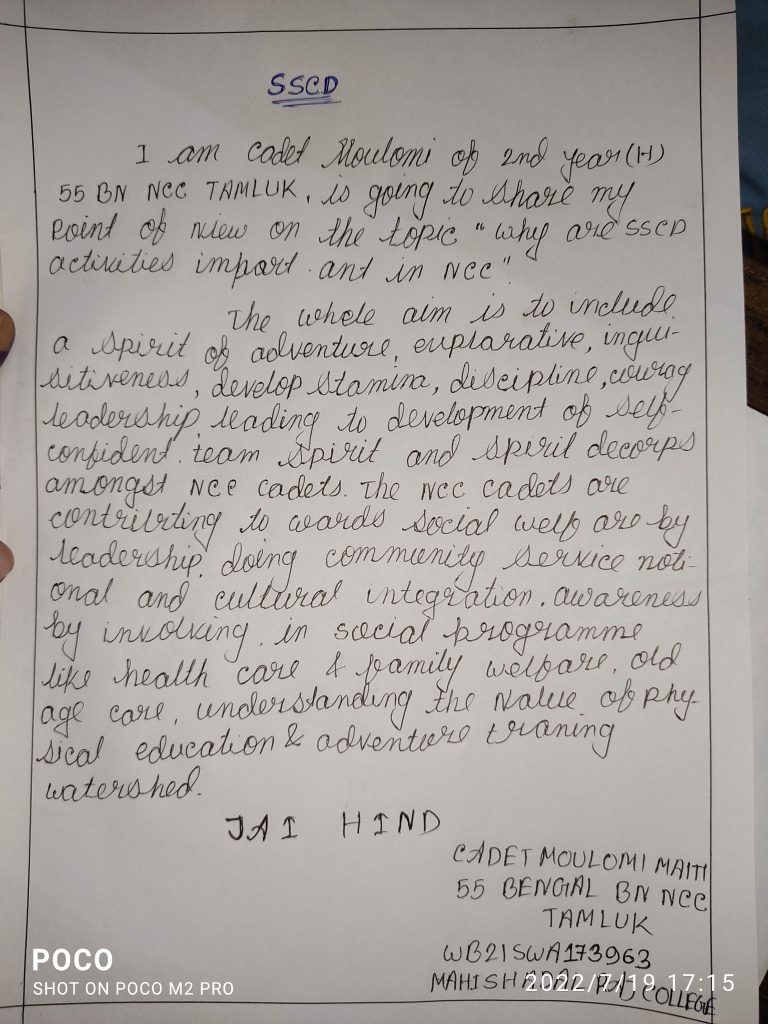 SSCD
I am cadet Moulomi of 2nd year(H)
55 BN NCC TAMLUK, is going to share my
Point of view on the topic "why are SSCD
activities import ant in NCC"
The whole aim is to include
a spirit of adventure, explarative, inqui-
sitiveness, develop stamina, discipline, courag
leadership leading to development of self-
confident. team spirit and spirit decorps
amongst NCC cadets. The NCC cadets are
contribting to wards social welf are by
leadership, doing community service noti-
onal and cultural integration. awareness
by involving in social programme
like health care & family welfare, old
age care, understanding the value of phy-
sical education & adventure traning
watershed.
JAI HIND
CADET MOULOMI MAITI
55 BENGAL BN NCC
TAMLUK
WB21SWA173963
MAHISHADAL RAJ COLLEGE
POCO
SHOT ON POCO M2 PRO
2022/7/19 17:15